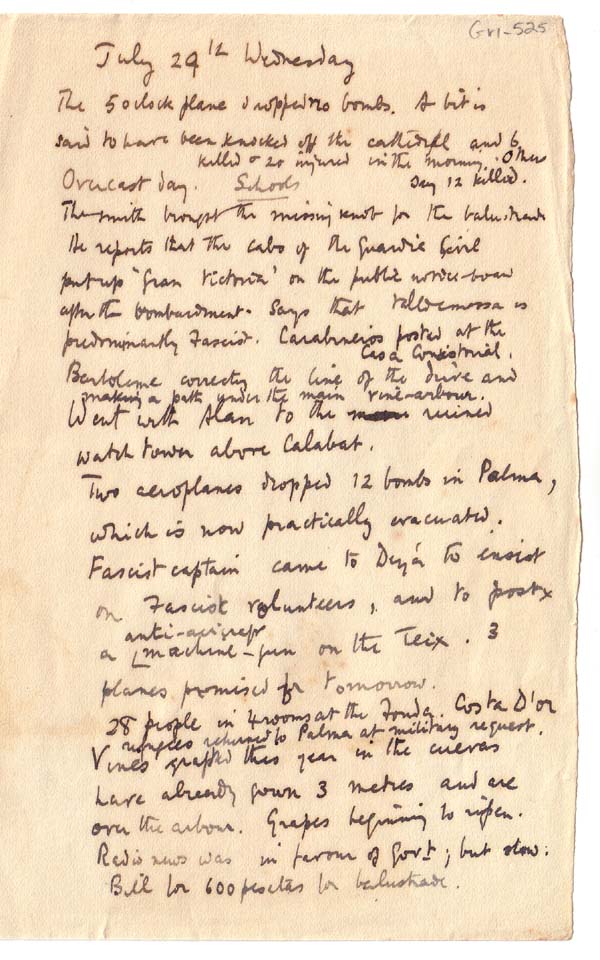 Gri-525
July 29th Wednesday
The 5 oclock plane dropped no bombs. A bit is
said to have been knocked off the cathedral and 6
killed & 20 injured in the morning. Others
Overcast day. Schools say 12 killed.
The smith brought the missing knob for the balustrade
He reports that the cabo of the Guardia Civil
put up 'Gran Victoria' on the public notice-board
after the bombardment. Says that Valldemossa is
predominantly Fascist. Carabineros posted at the
Casa Consistorial.
Bartolome correcting the line of the drive and
making a path under the main vine-arbour.
Went with Alan to the ruined
watch tower above Calabat.
Two aeroplanes dropped 12 bombs in Palma,
which is now practically evacuated.
Fascist captain came to Deyá to insist
on Fascist volunteers, and to post
anti-aircraft
a machine-gun on the Teix. 3
planes promised for tomorrow.
28 people in 4 rooms at the Fonda. Costa D'or
refugees returned to Palma at military request.
Vines grafted this year in the cuevas
have already grown 3 metres and are
over the arbour. Grapes beginning to ripen.
Radio news was in favour of Govt; but slow.
Bill for 600 pesetas for balustrade.